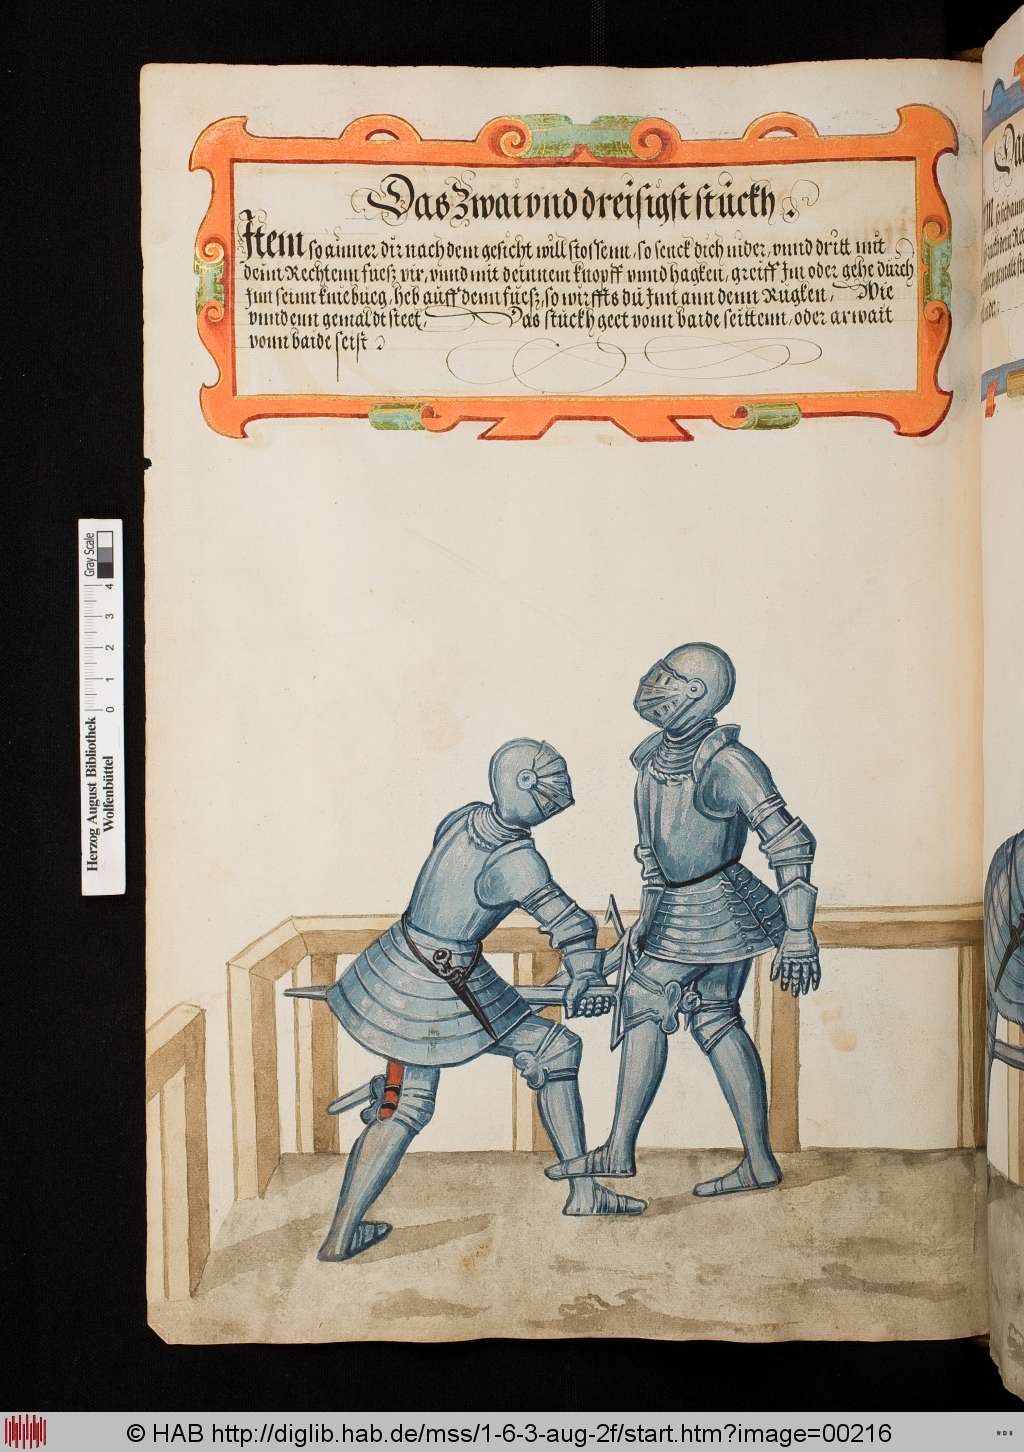 Das Zwai vnd dreisigst stückh.
Item so ainner dir nach dem gesicht will stossenn, so senck dich nider, vnnd dritt mit
deim Rechtenn fuesz vir, vnnd mit deinnem knopff vnnd hagken, greiff Im oder gehe dürch
Im seinn kniebueg, heb auff denn fuesz, so wirffts dü Inn ann denn Rugken, Wie
vnndenn gemaldt steet, Das stückh geet vonn baide seittenn, oder arwait
vonn baide seist
Herzog August Bibliothek
Wolfenbüttel
0 1 2 3 4
Gray Scale
© HAB http://diglib.hab.de/mss/1-6-3-aug-2f/start.htm?image=00216